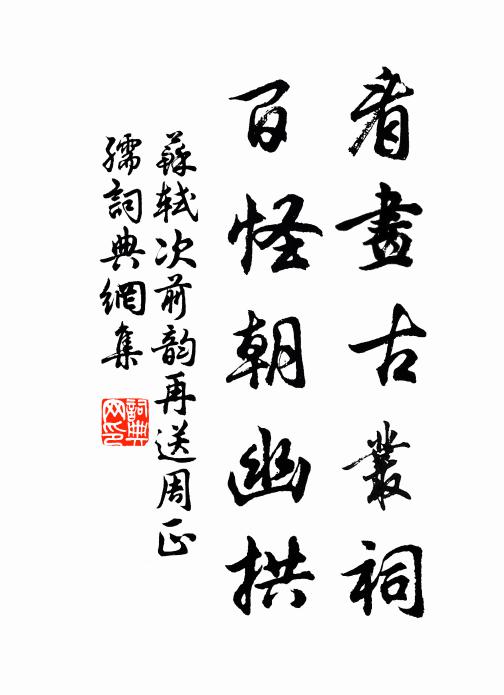 看畫古叢祠
百怪朝幽拱
蘇軾次前韵再送周正
孺詞典網集
詞典网印